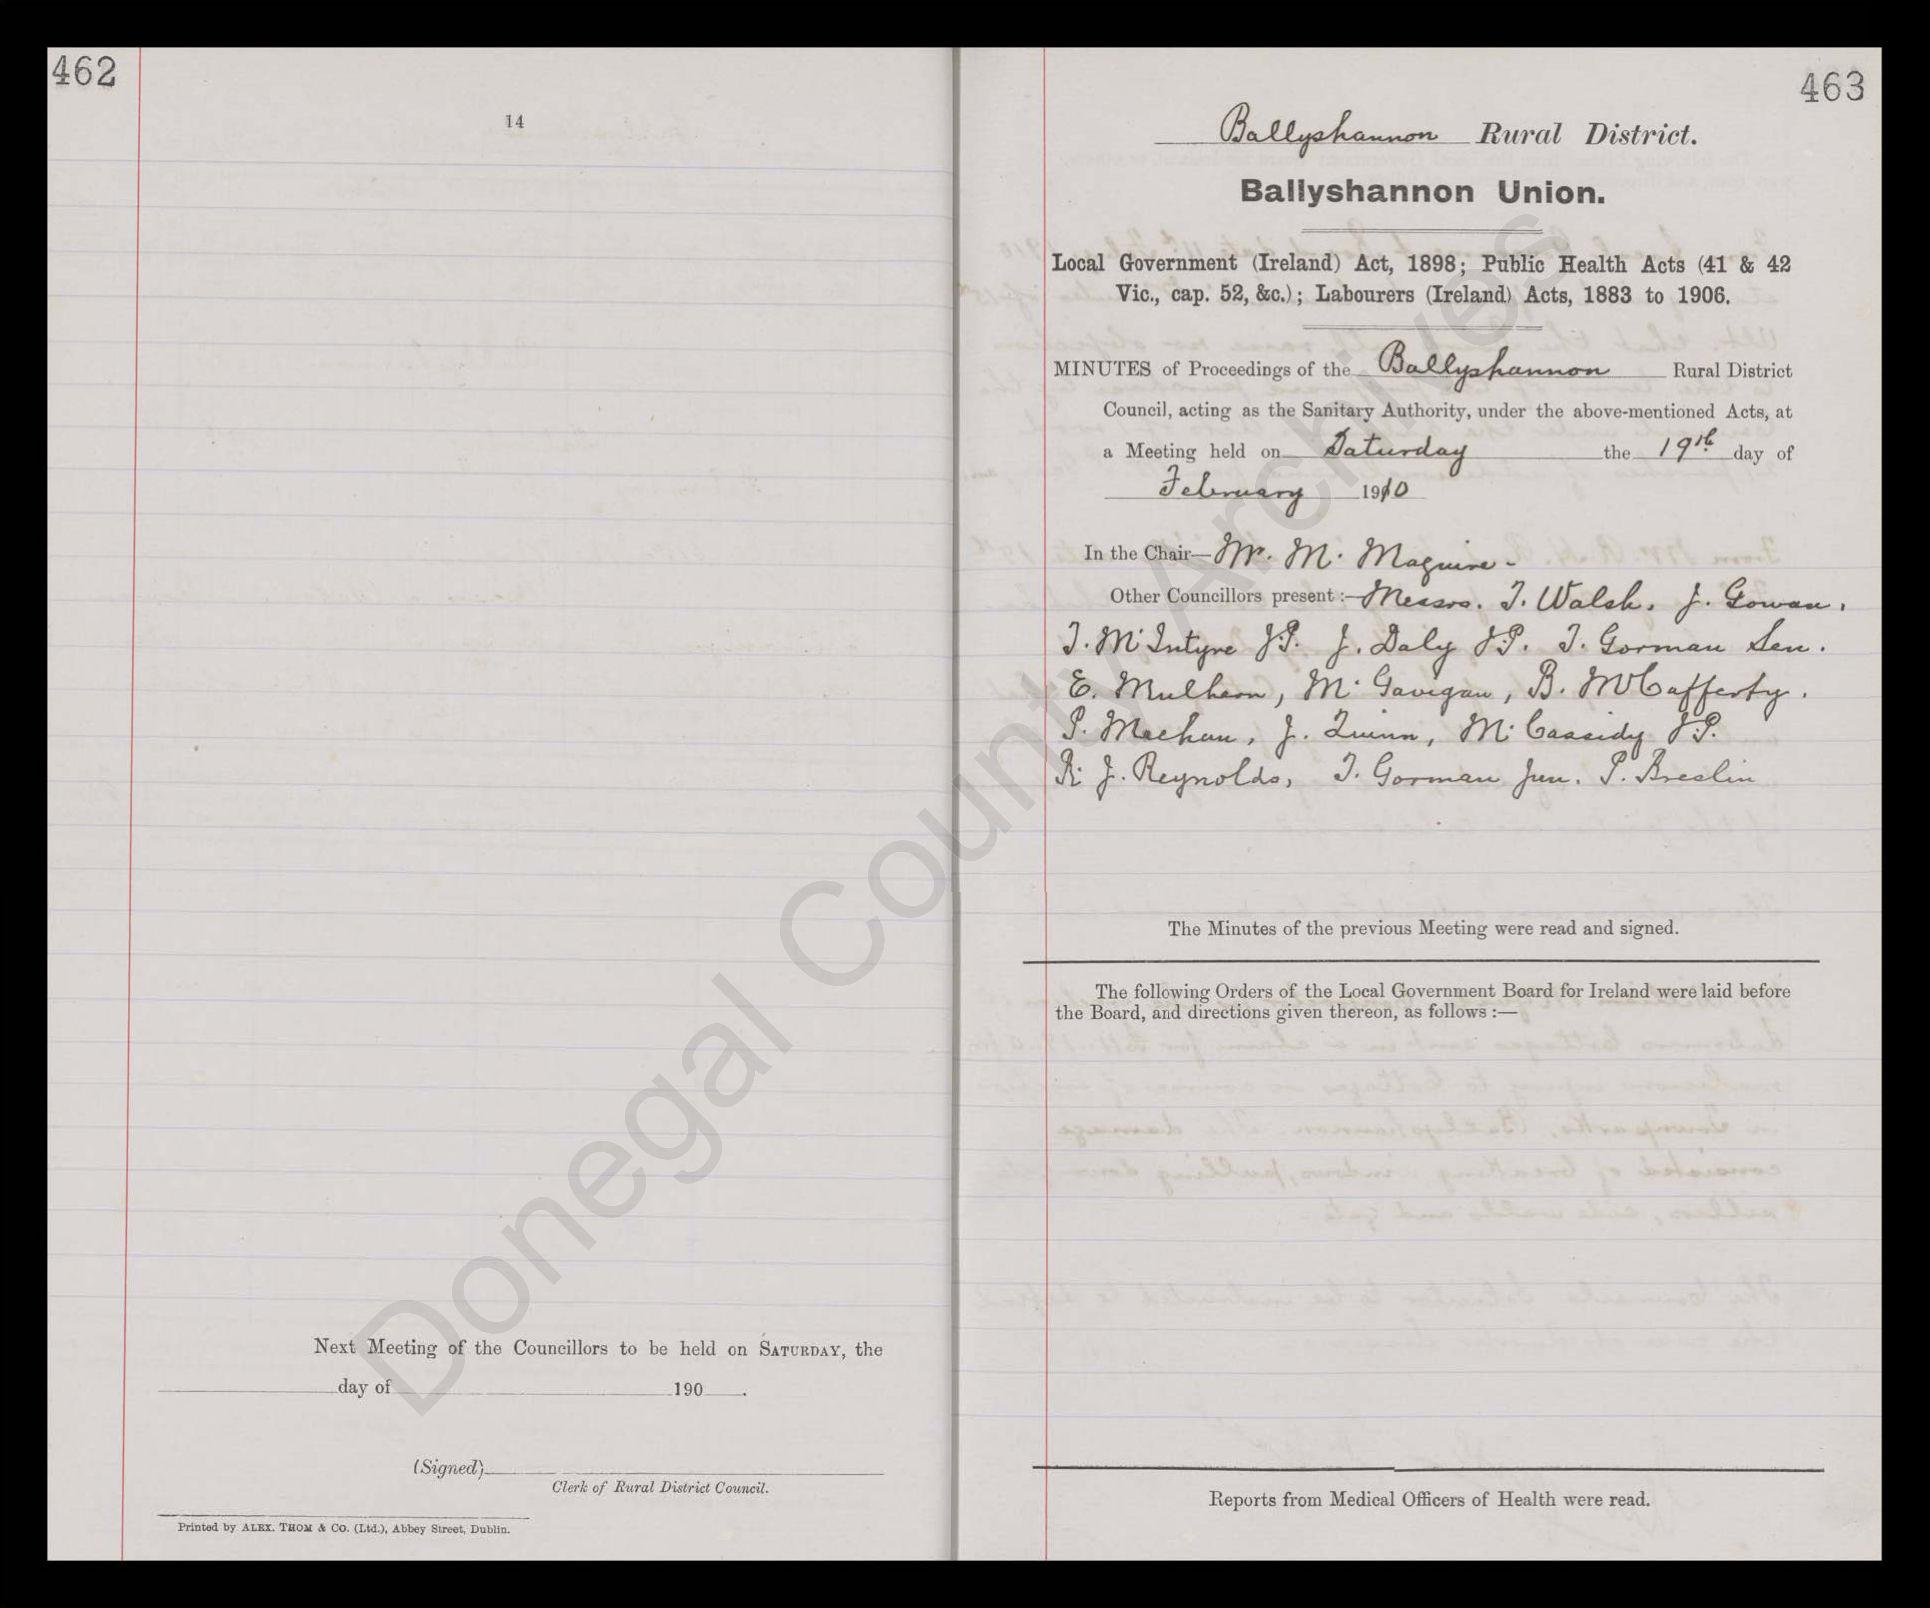 462
14
Next Meeting of the Councillors to be held on SATURDAY, the
day of 190 .
(Signed)
Clerk of Rural District Council.
Printed by ALEX. THOM & CO. (Ltd.), Abbey Street, Dublin.
463
Ballyshannon Rural District.
Ballyshannon Union.
Local Government (Ireland) Act, 1898; Public Health Acts (41 & 42
Vic., cap. 52, &c.); Labourers (Ireland) Acts, 1883 to 1906.
MINUTES of Proceedings of the Ballyshannon Rural District
Council, acting as the Sanitary Authority, under the above-mentioned Acts, at
a Meeting held on Saturday the 19th day of
February 1910
In the Chair—Mr. M. Maguire.
Other Councillors present:—Messrs. T. Walsh, J. Gowan,
T. McIntyre J.P. J. Daly J.P. T. Gorman Sen.
E. Mulhern, M. Gavigan, B. McCafferty.
P. Meehan, J. Quinn, M. Cassidy J.P.
R. J. Reynolds, T. Gorman Jun. P. Breslin
The Minutes of the previous Meeting were read and signed.
The following Orders of the Local Government Board for Ireland were laid before
the Board, and directions given thereon, as follows :—
Reports from Medical Officers of Health were read.
Donegal County Archives